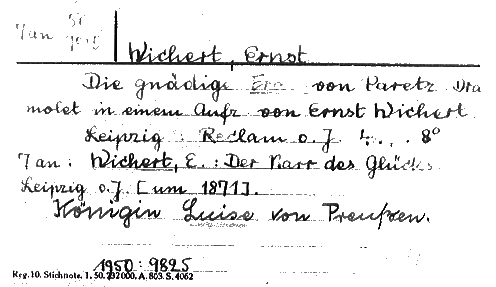 7 an 50
Wichert, Ernst
Die gnädige Fra von Paretz Dra
molet in einem Aufz von Ernst Wichert
Leipzig : Reclam o. J 8°
7 an: Wichert, E.: Der Narr des Glücks
Leipzig o.J. [um 1871].
Königin Luise von Preußen.
1950: 9825
Reg. 10. Stichnote. 1. 50. 202000. A. 803. S. 4062